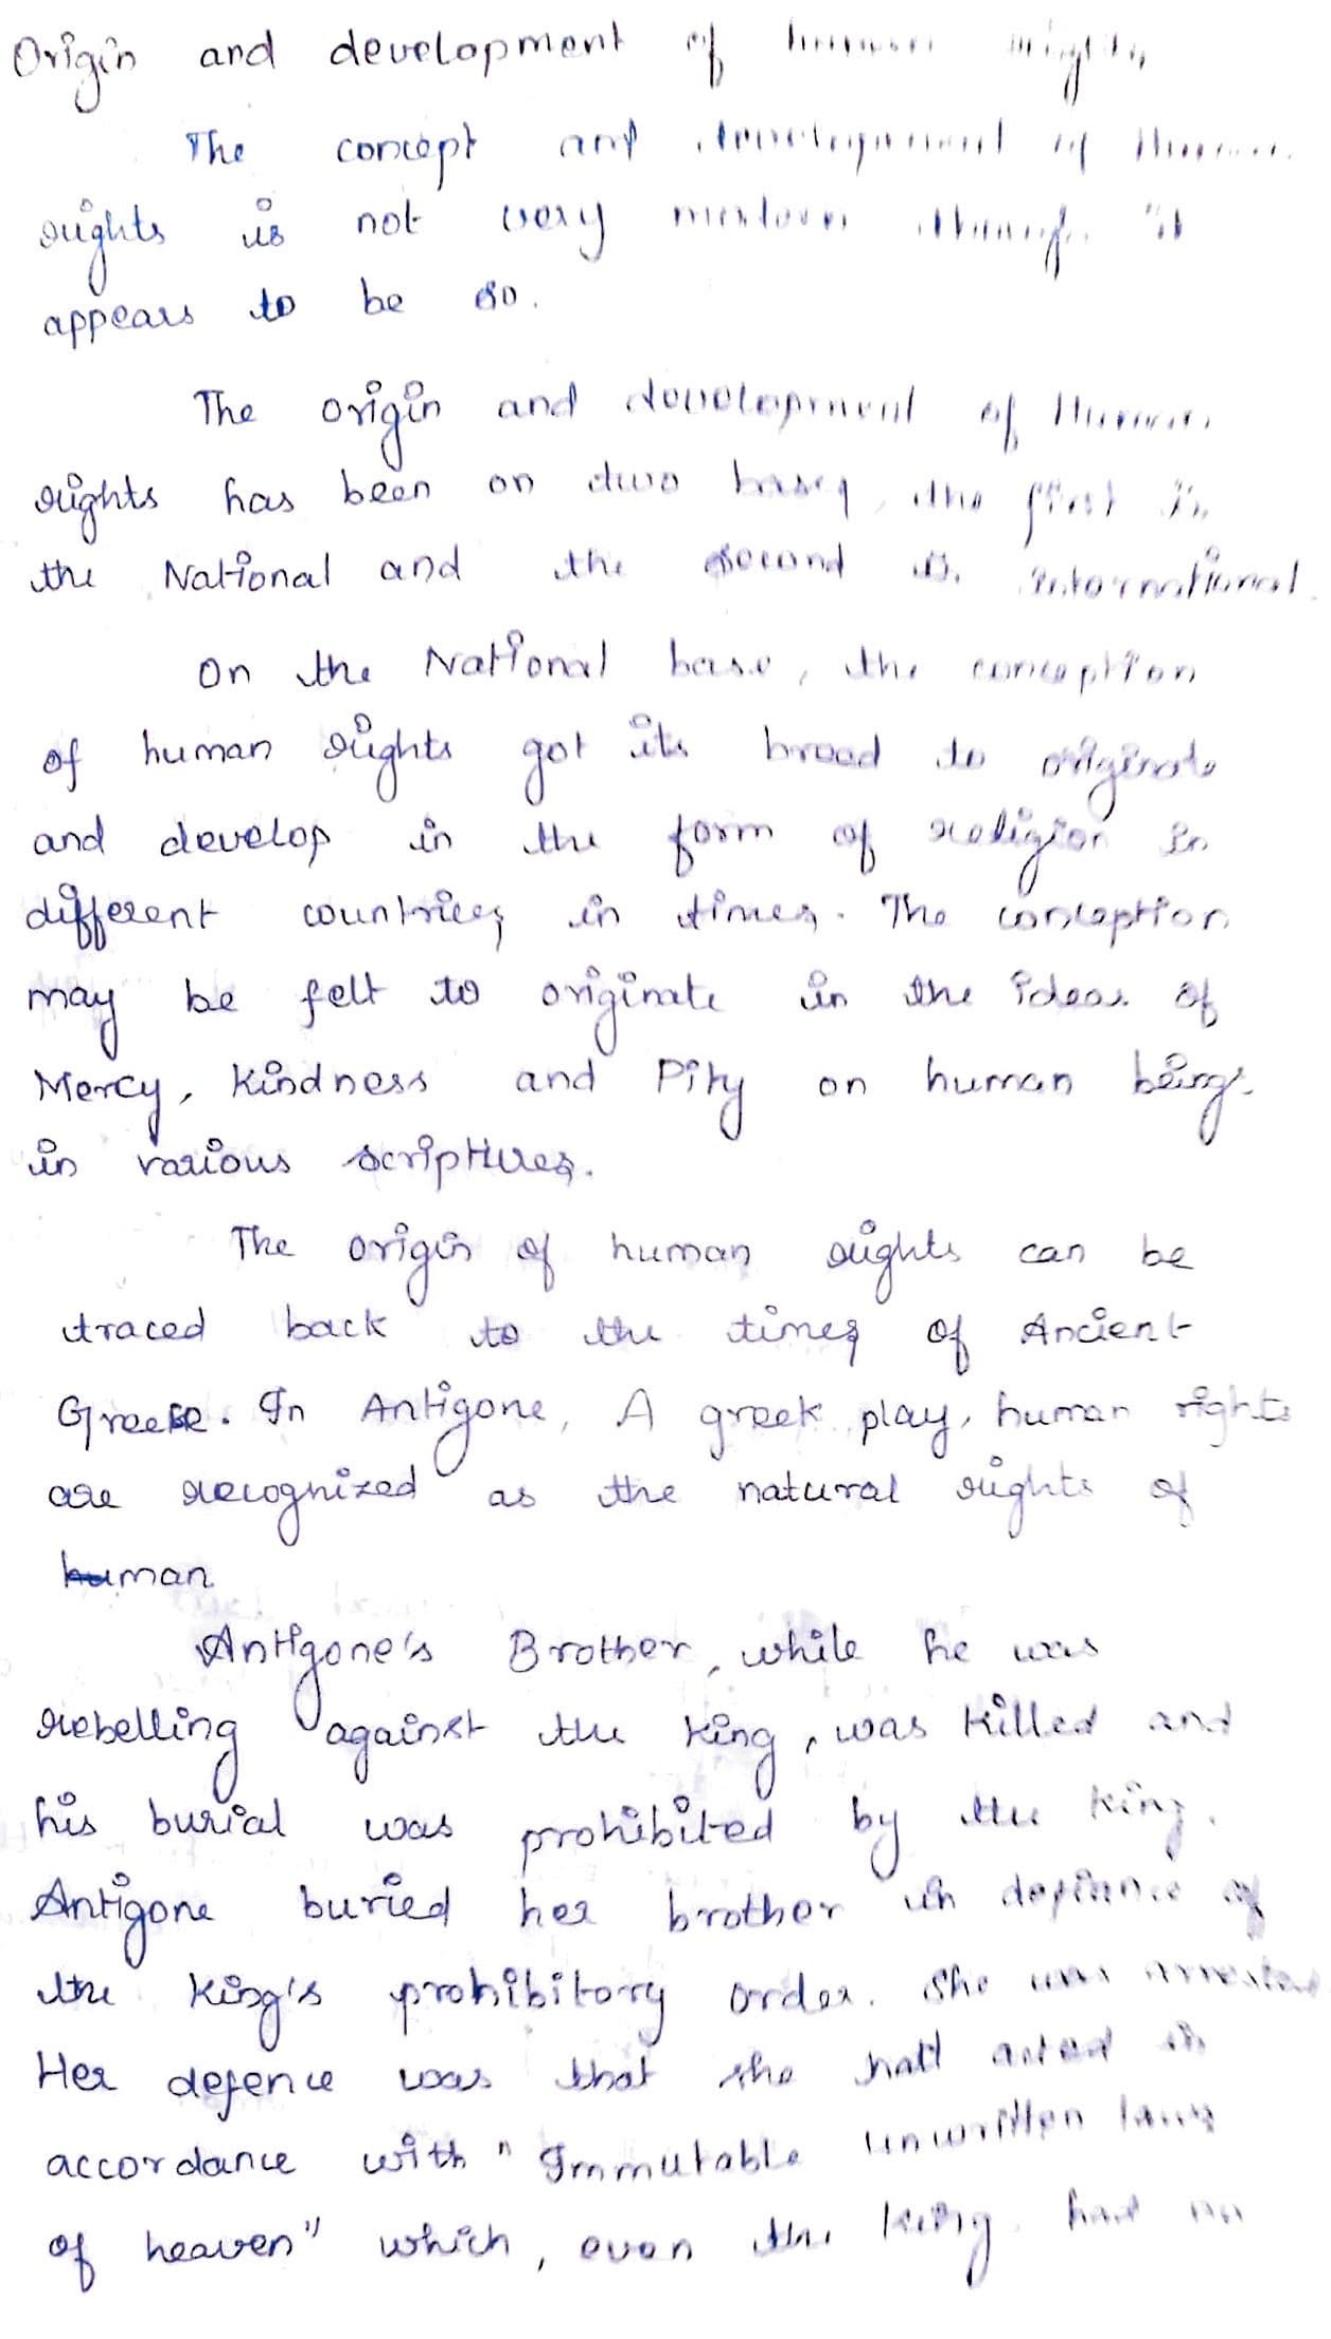 Origin and development of human rights
The concept and development of Human
rights is not very modern though it
appears to be so.
The origin and development of Human
rights has been on two bases, the first is
the National and the second is international.
On the National base, the conception
of human rights got its broad to originate
and develop in the form of religion in
different countries in times. The conception
may be felt to originate in the ideas of
Mercy, Kindness and Pity on human beings
in various scriptures.
The origin of human rights can be
traced back to the times of Ancient
Greece. In Antigone, A greek play, human rights
are recognized as the natural rights of
man
Antigone's Brother, while he was
rebelling against the king, was killed and
his burial was prohibited by the king.
Antigone buried her brother in defiance of
the king's prohibitory order. She was arrested
Her defence was that she had acted in
accordance with "Immutable unwritten laws
of heaven" which, even the king had no